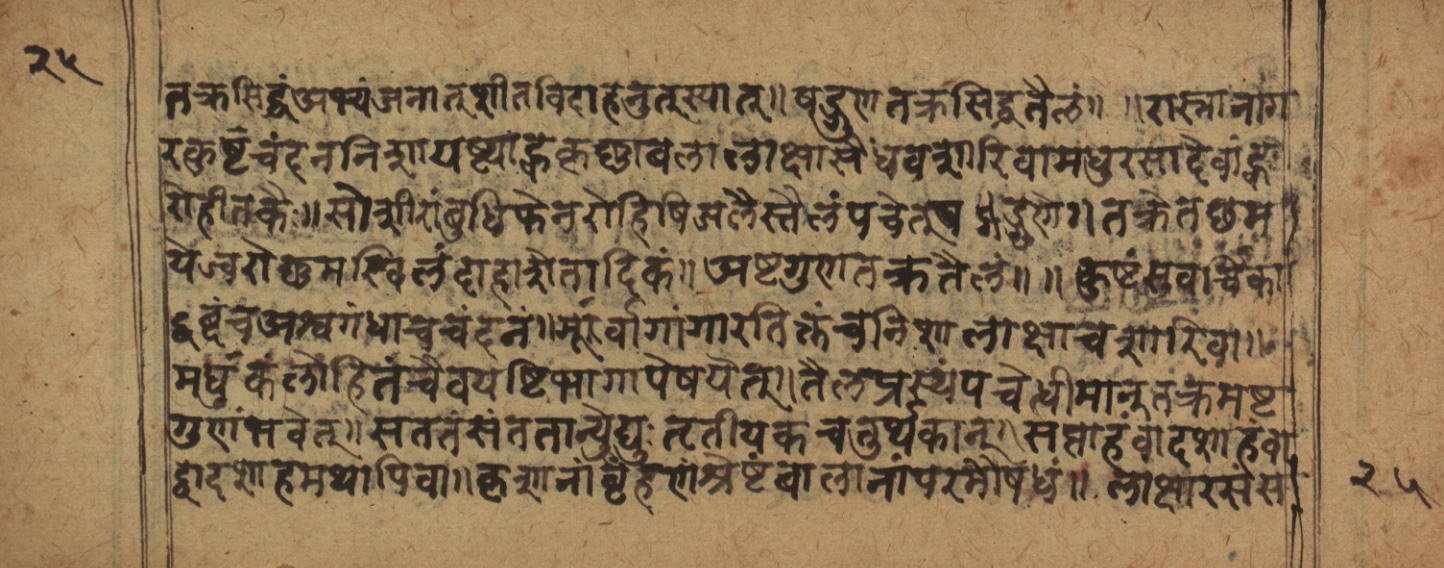 २५
तक्रसिद्धं अभ्यंजनात् शीतविदाहनुत् स्यात्॥ षड्गुणतक्रसिद्धतैलं॥ ॥रास्नानाग
रकुष्टचंदननिशायष्ट्याह्वकृष्णाबलालाक्षासैंधवशारिवामधुरसादेवाह्व
रोहीतकैः॥ सोशीरांबुधिफेनरोहिषजलैस्तैलं पचेत् षड्गुणे। तक्रे तछम
येज्वरोष्णमखिलं दाहाशीतादिकं॥ अष्टगुणतक्रतैलं॥ ॥ कुष्टं सुवर्चिका
दुष्टं च अश्वगंधा च चंदनं॥ मूर्वा नागारतिक्तं च निशा लाक्षा च शारिवा॥
मधुकं लोहितं चैव यष्टिभागा पेषयेत्॥ तैलप्रस्थं पचेत्धीमान् तक्रमष्ट
गुणं भवेत्॥ सततं संततान्येद्युः तृतीयकचतुर्थकान्। सप्ताहं वा दशाहं वा
द्वादशाहमथापि वा॥ कृशानां बृंहणं श्रेष्टं बालानां परमौषधं॥ लाक्षारसंस
२५